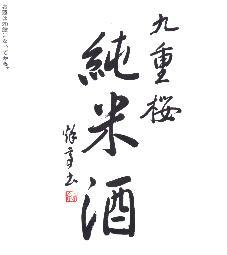 九重桜
純米酒
お酒は20歳になってから。